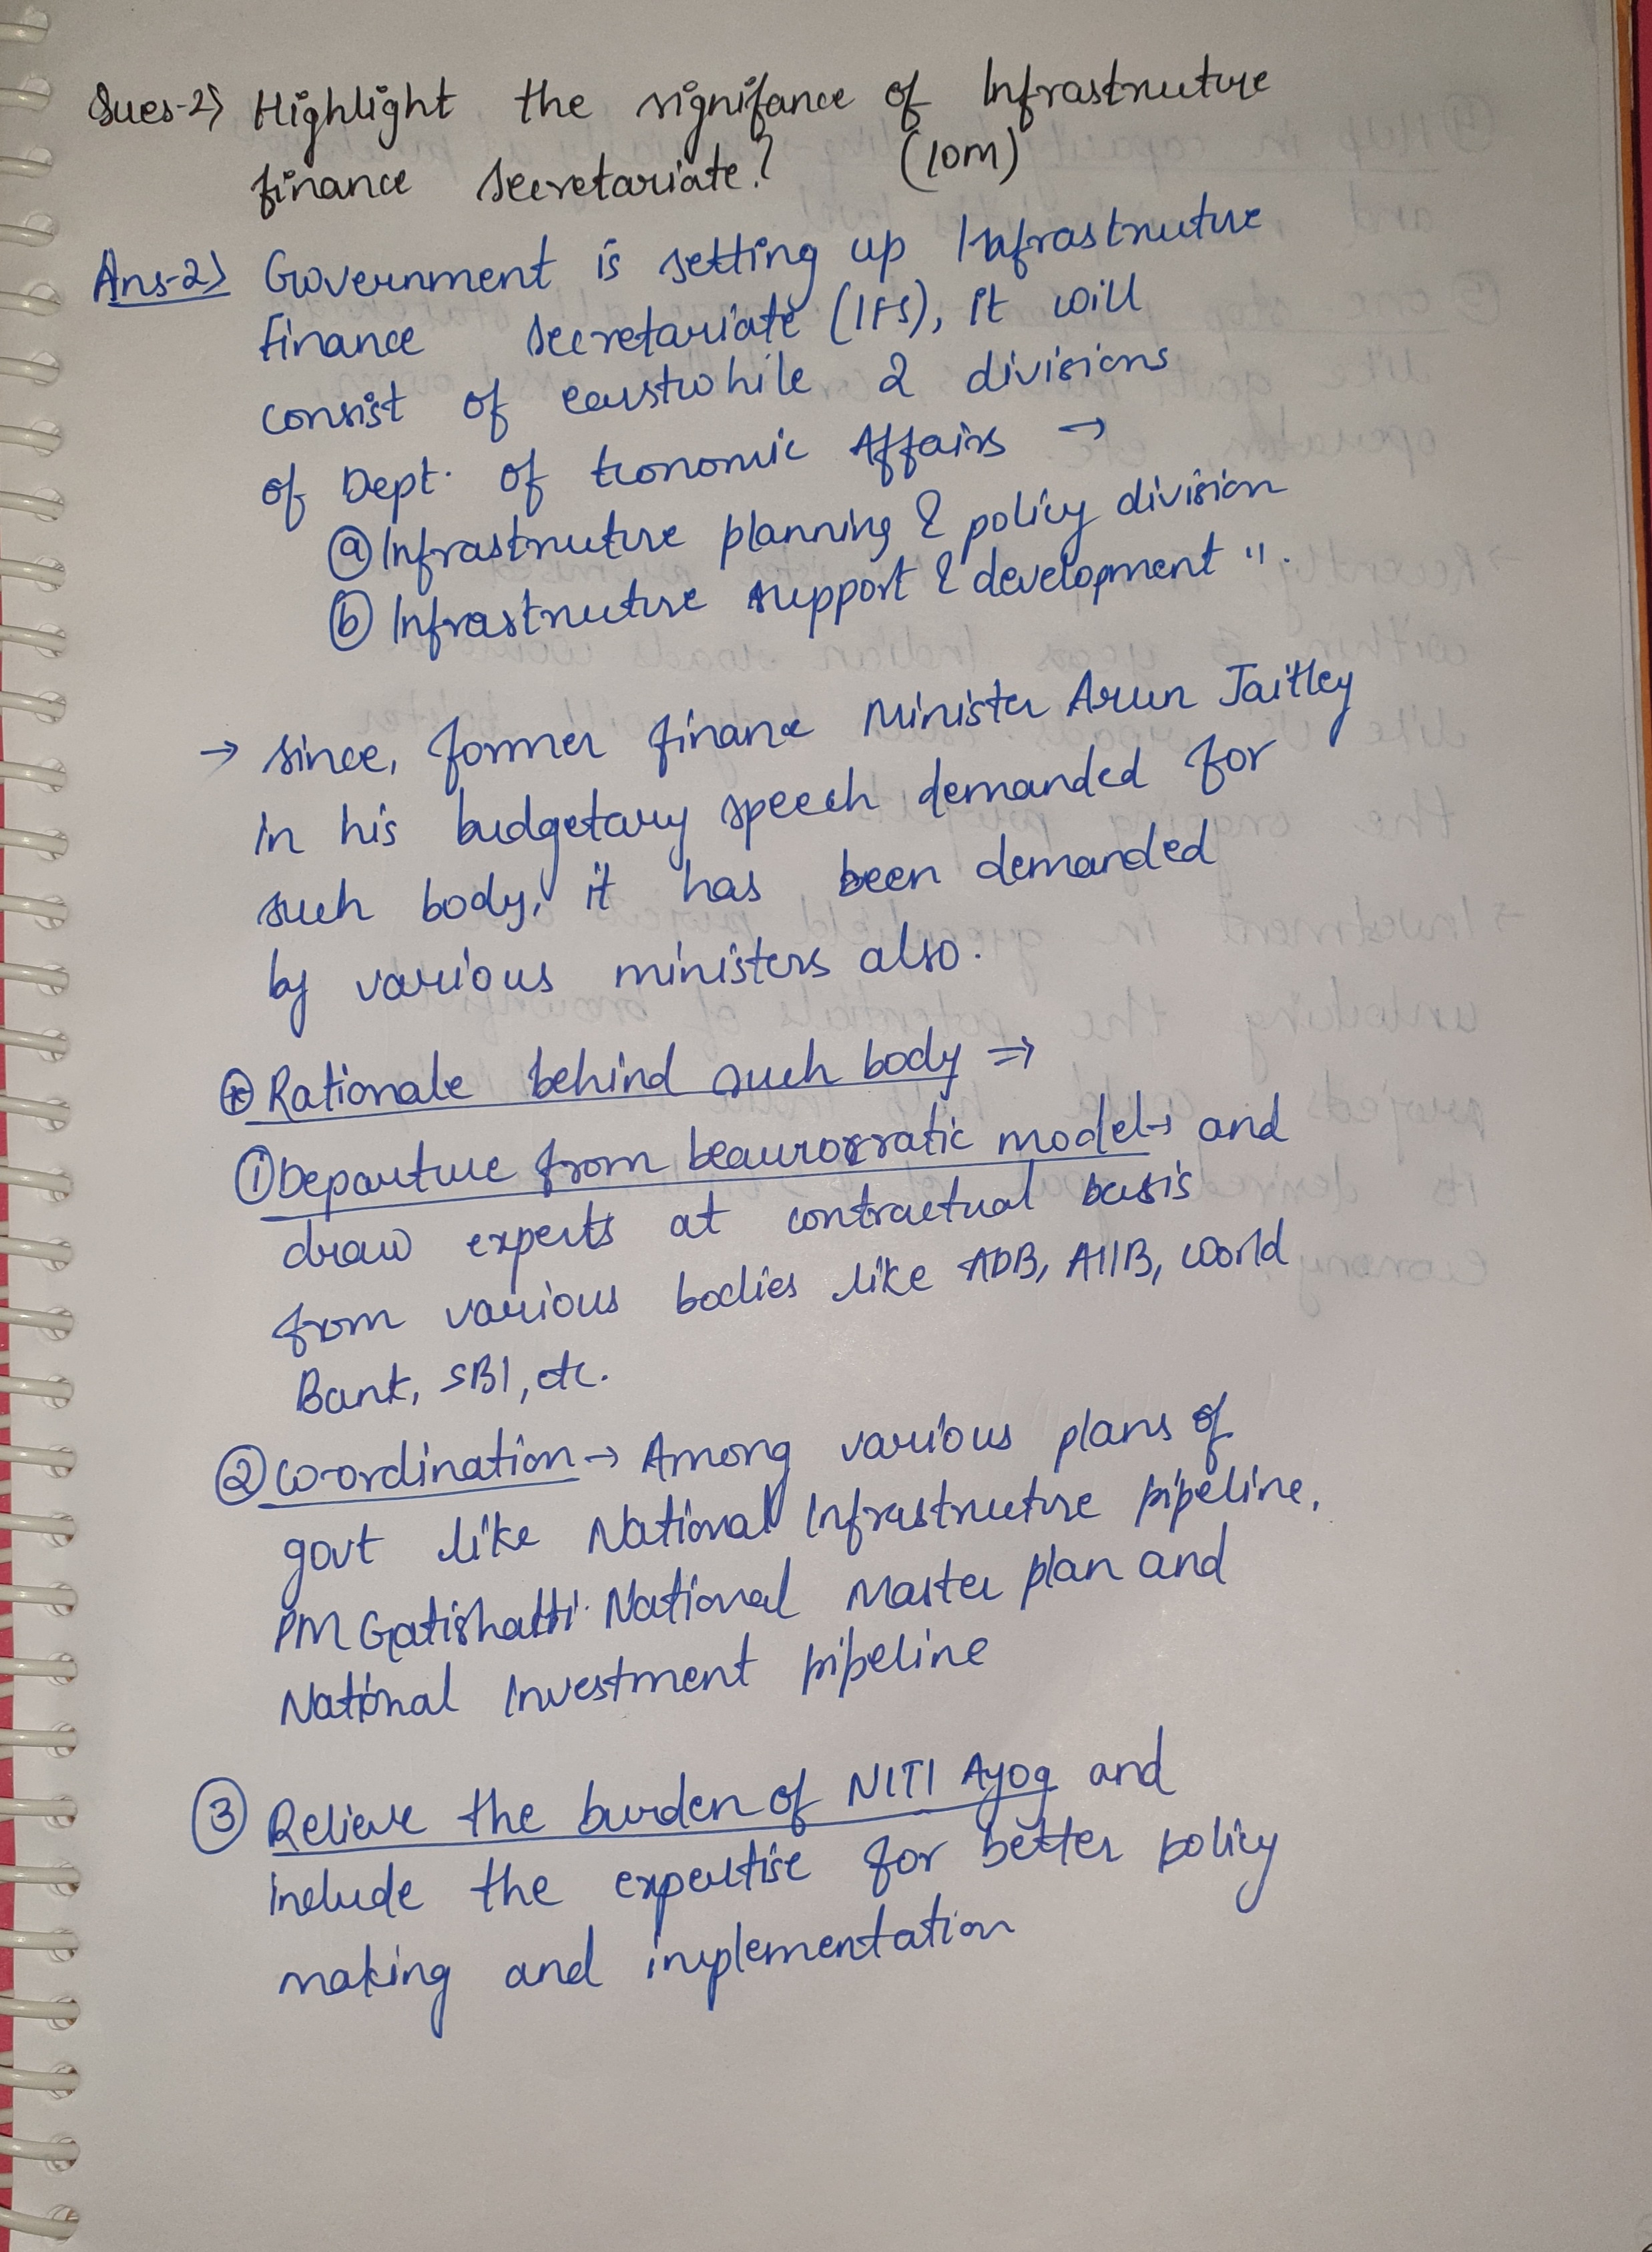 Ques-2) Highlight the signifance of Infrastructure
finance secretariate? (10m)
Ans-2) Government is setting up Infrastructure
Finance secretariate (IFS), it will
consist of earstwhile 2 divisions
of Dept. of Economic Affairs →
(a) Infrastructure planning & policy division
(b) Infrastructure support & development ".
→ since, former finance Minister Arun Jaitley
in his budgetary speech demanded for
such body, it has been demanded
by various ministers also.
* Rationale behind such body ⇒
(1) Departure from beaurocratic model → and
draw experts at contractual basis
from various bodies like ADB, AIIB, World
Bank, SBI, etc.
(2) Co-ordination → Among various plans of
govt like National Infrastructure pipeline,
PM Gatishakti National Master plan and
National Investment pipeline
(3) Relieve the burden of NITI Ayog and
include the expertise for better policy
making and implementation